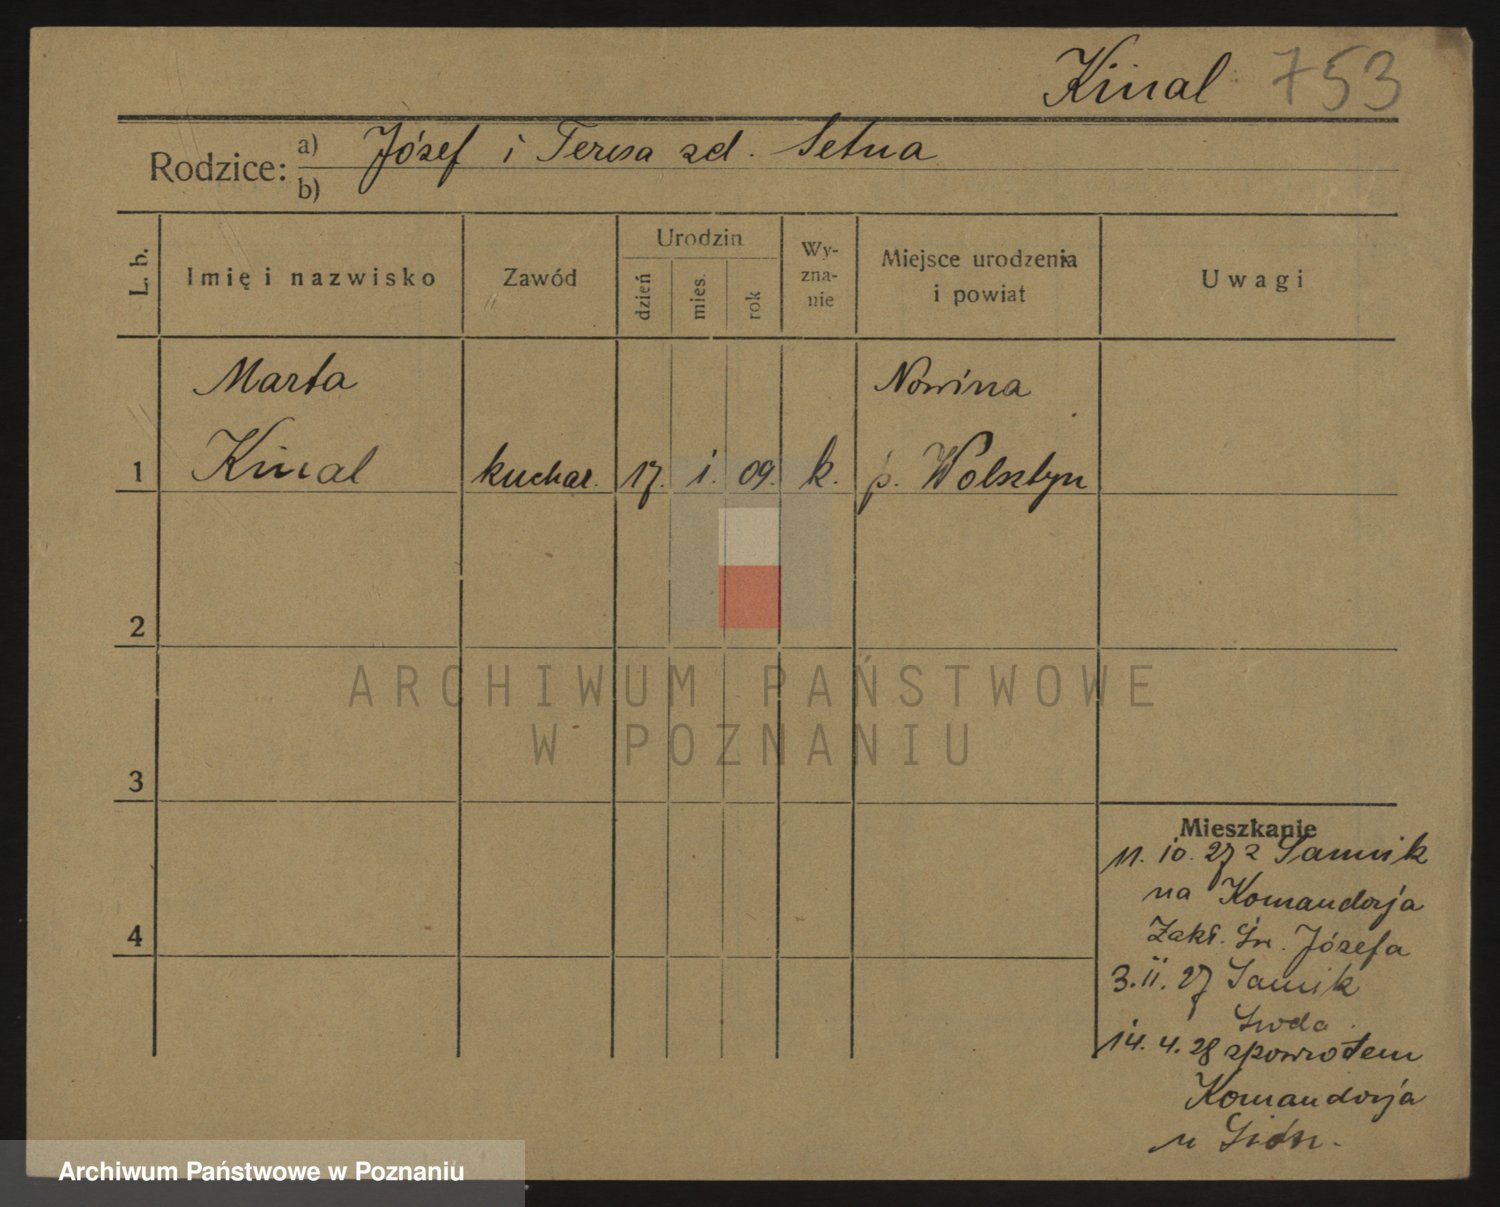 Kinal 753
Rodzice: a) Józef i Teresa zd. Setna
b)
L. b.
Imię i nazwisko
Zawód
Urodzin
dzień
mies.
rok
Wy-
zna-
nie
Miejsce urodzenia
i powiat
Uwagi
Marta
Nowina
1 Kinal kuchar. 17. i. 09. k. p. Wolsztyn
2
ARCHIWUM PAŃSTWOWE
W POZNANIU
3
Mieszkanie
11. 10. 27 z
na Komandorja
4
Zakł. Św. Józefa
3. II. 27
14. 4. 28 zpowrotem
Komandorja
u
Archiwum Państwowe w Poznaniu